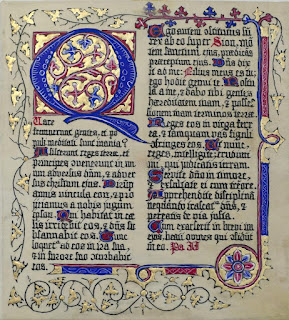 Quare
fremuerunt gentes, et po
puli meditati sunt inania?
Astiterunt reges terre, et
principes convenerunt in un
um adversus dñm, & adver
sus christum eius. Dirup
amus vincula eor, & pro
iiciamus a nobis jugum
ipsor. Qui habitat in cae
lis irridebit eos, & dñs su
bsannabit eos. Tunc
loquet' ad eos in ira sua,
& in furore suo conturbabit
eos.
Ego autem constitutus su
rex ab eo super Sion, mō
tem sanctum eius, praedicās
praeceptum eius. Dñs dix
it ad me: Filius meus es tu,
ego hodie genui te. Postul
a a me, & dabo tibi gentes
hereditatem tuam, & posses
sionem tuam terminos terrae.
Reges eos in virga ferre
a, & tamquam vas figuli
confringes eos. Et nunc
reges, intelligite; erudimi
ni, qui judicatis terram.
Servite dño in timore,
& exsultate ei cum tremore.
Apprehendite disciplinā
nequando irascat' dñs, &
pereatis de via justa.
Cum exarserit in brevi ira
ejus, beati omnes qui confidunt
in eo. Ps II